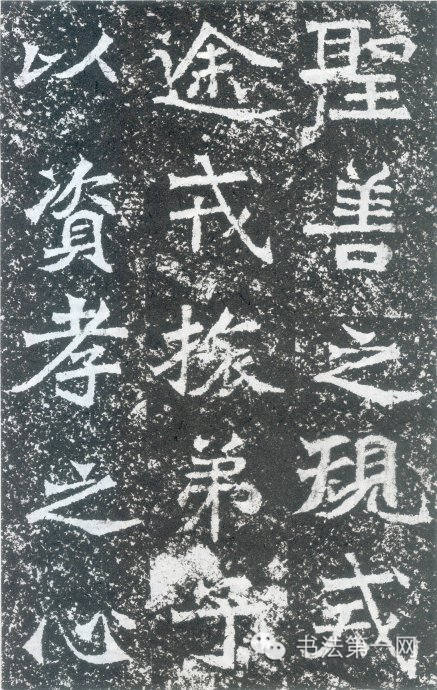 聖善之現式
途戎振弟子
以資孝之心
书法第一网